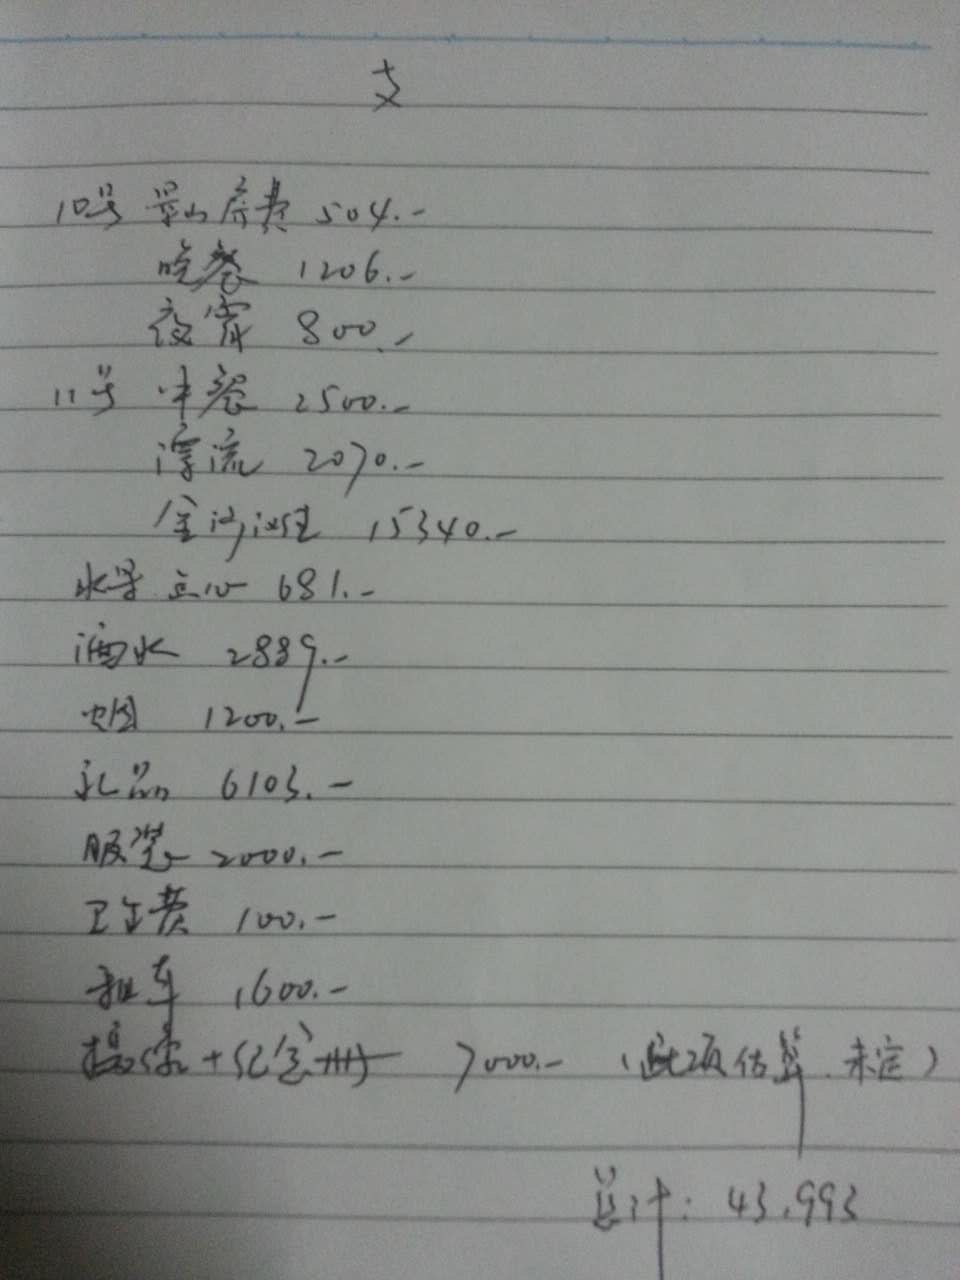 支
10号 景山房费 504.-
晚餐 1206.-
夜宵 800.-
11号 中餐 2500.-
漂流 2070.-
15340.-
水果.点心 681.-
酒水 2889.-
1200.-
礼品 6103.-
服装 2000.-
卫生费 100.-
租车 1600.-
摄像+纪念册 7000.- (此项估算.未定)
总计: 43.993